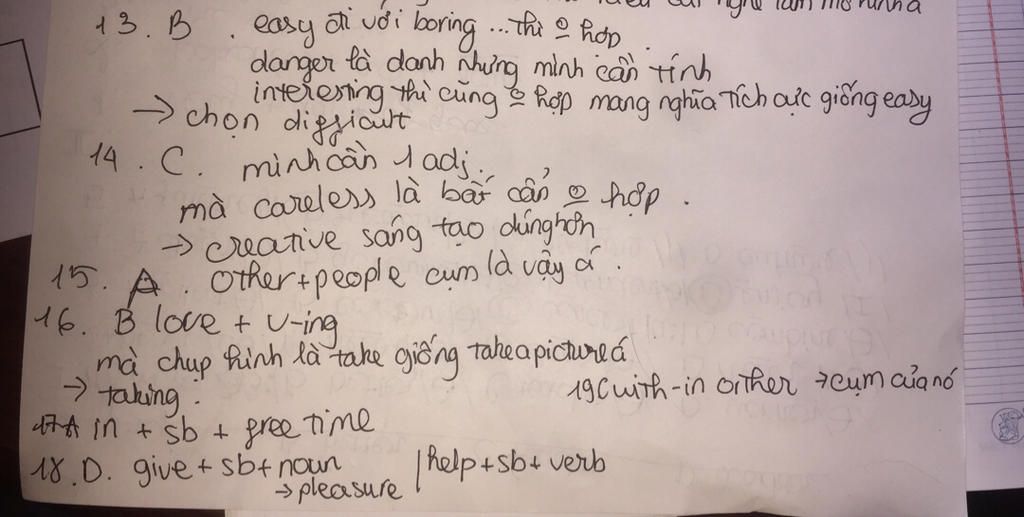 13. B. easy đi với boring ... thì o hợp.
danger là danh nhưng mình cần tính
interesring thì cũng o hợp mang nghĩa tích cực giống easy
→ chọn difficult
14. C. mình cần 1 adj.
mà careless là bất cẩn o hợp.
→ creative sáng tạo đúng hơn
15. A. other + people cụm là vậy á.
16. B love + V-ing
mà chụp hình là take giống take a picture á
→ taking.
19C with-in orther → cụm của nó
17A in + sb + free time
18. D. give + sb + noun | help + sb + verb
→ pleasure